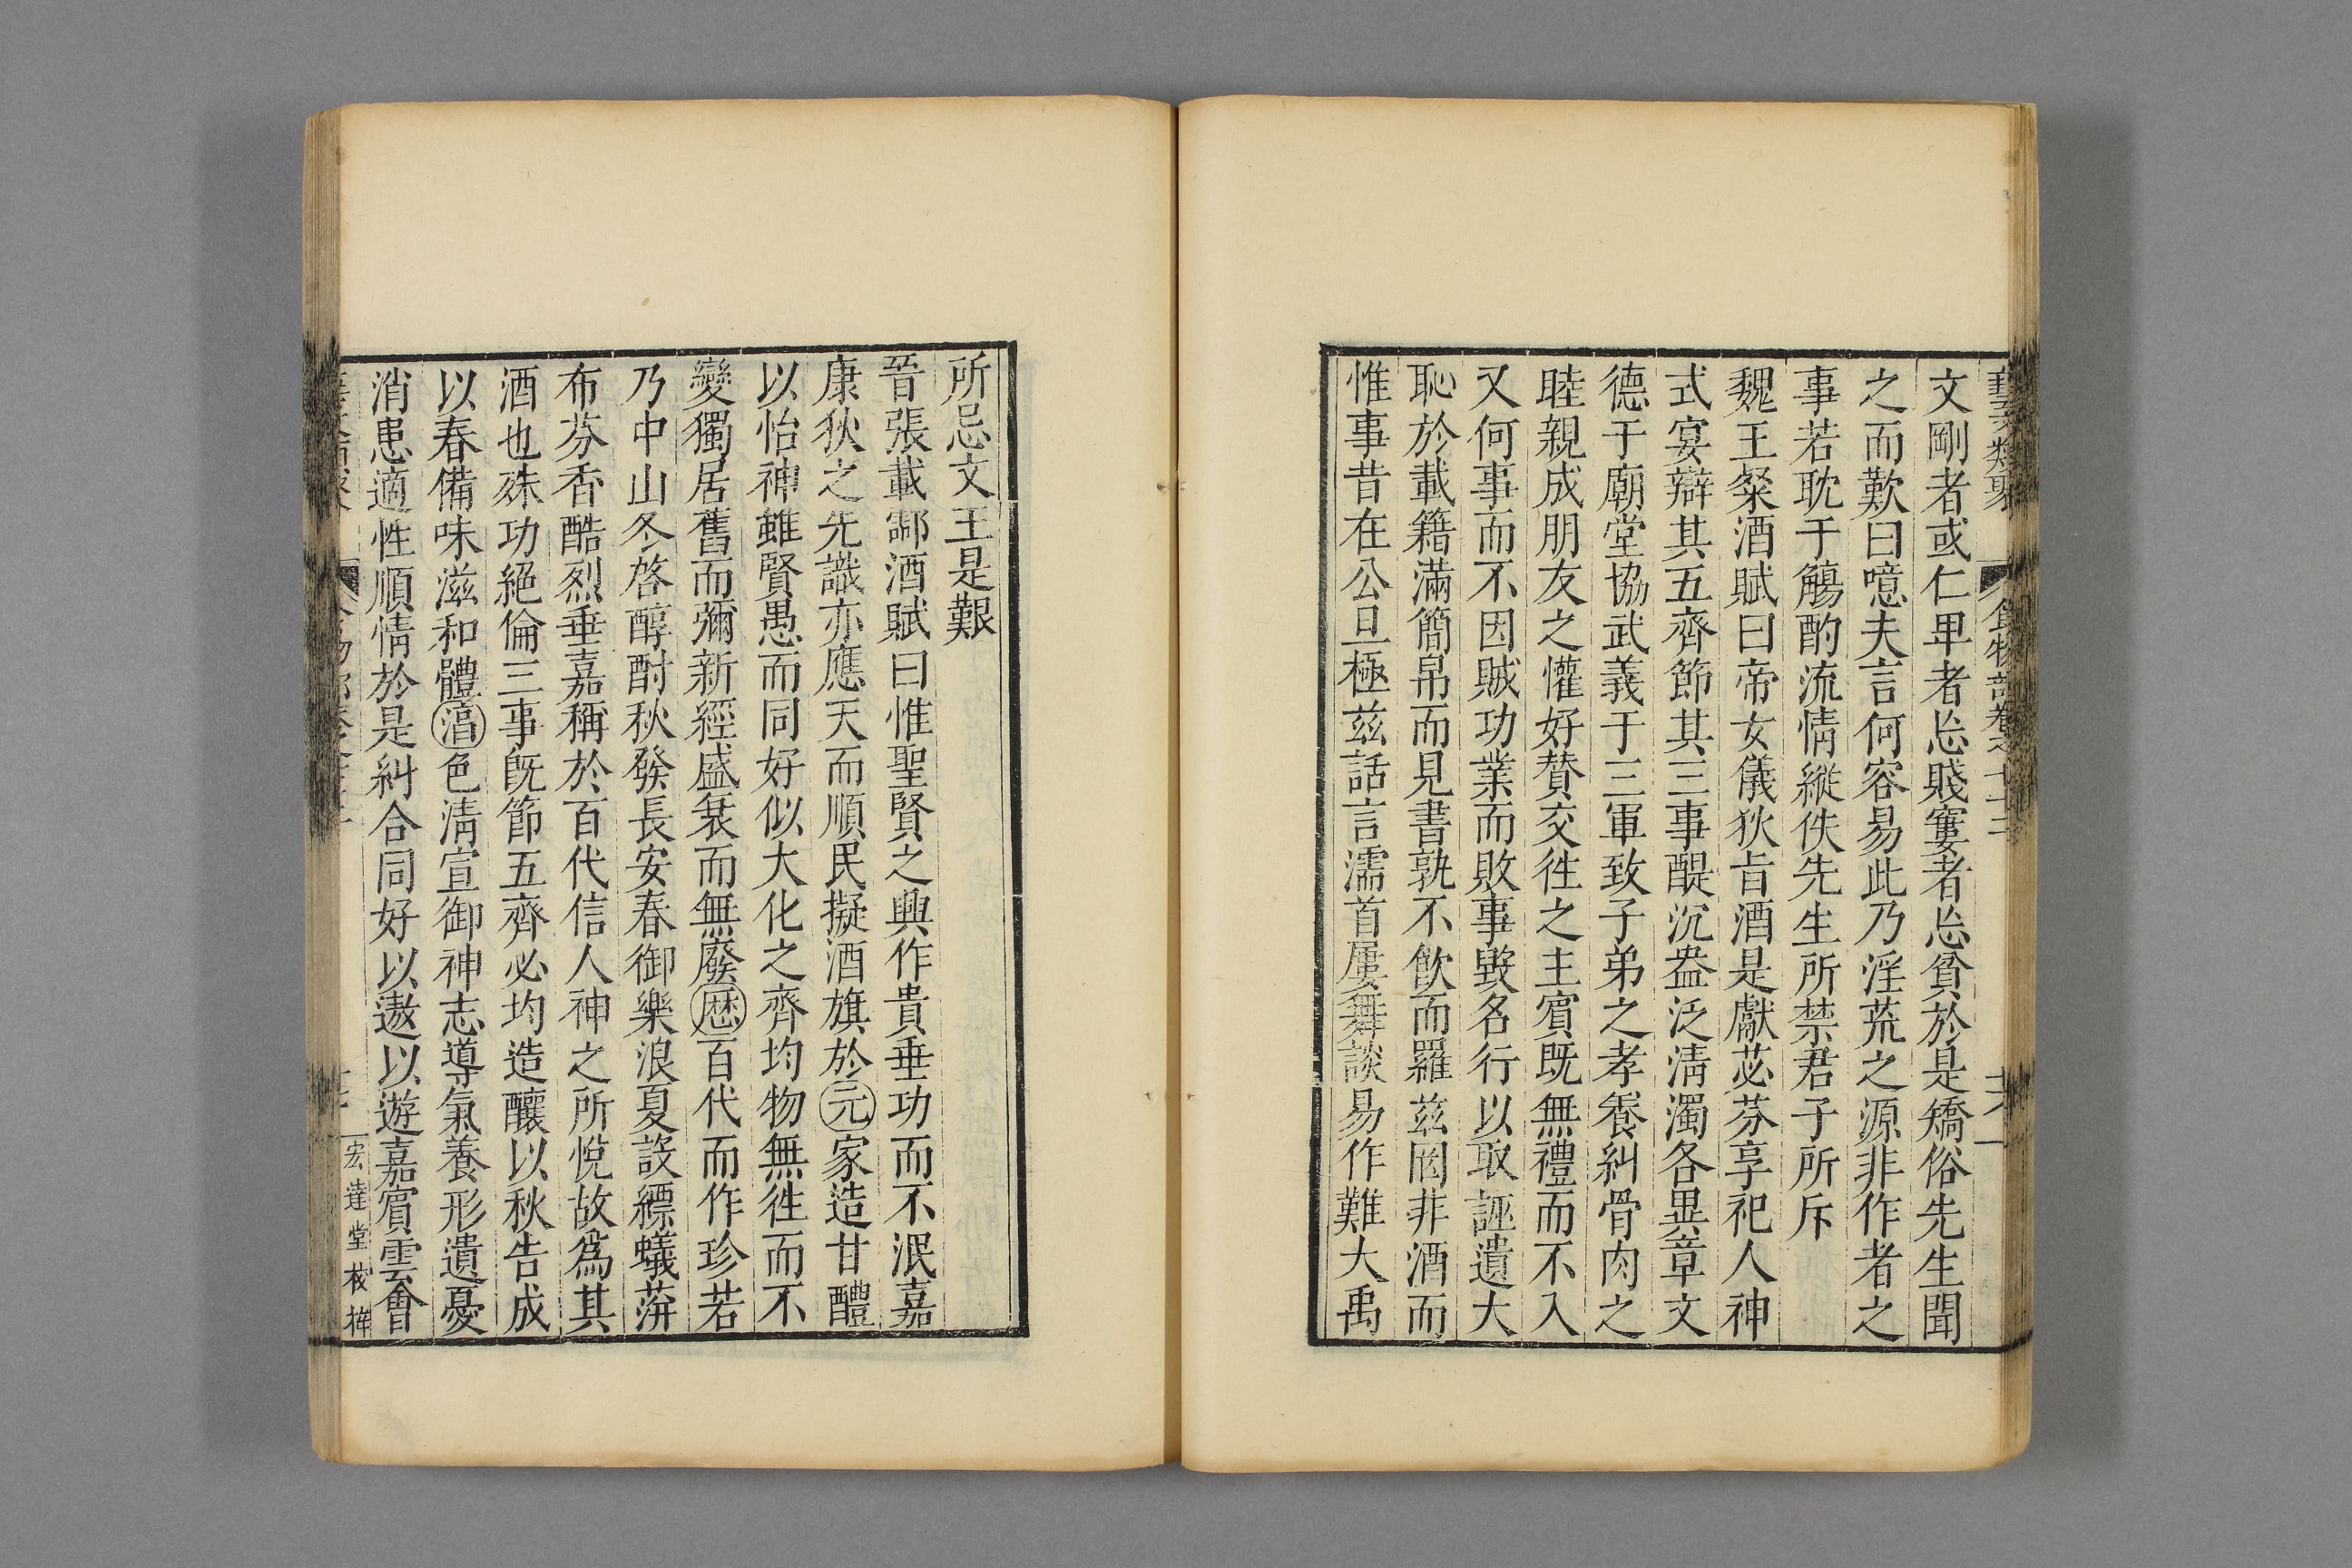 藝文類聚 食物部卷七十二 十六
文剛者或仁卑者忘賤窶者忘貧於是矯俗先生聞
之而歎曰噫夫言何容易此乃淫荒之源非作者之
事若耽于觴酌流情縱佚先生所禁君子所斥
魏王粲酒賦曰帝女儀狄旨酒是獻苾芬享祀人神
式宴辯其五齊節其三事醍沉盎泛清濁各異章文
德于廟堂協武義于三軍致子弟之孝養糾骨肉之
睦親成朋友之懽好贊交徃之主賓既無禮而不入
又何事而不因賊功業而敗事毀名行以取誣遺大
恥於載籍滿簡帛而見書孰不飲而羅茲罔非酒而
惟事昔在公旦極茲話言濡首屢舞談易作難大禹
所忌文王是艱
晉張載酃酒賦曰惟聖賢之興作貴垂功而不泯嘉
康狄之先識亦應天而順民擬酒旗於元家造甘醴
以怡神雖賢愚而同好似大化之齊均物無徃而不
變獨居舊而彌新經盛衰而無廢歴百代而作珍若
乃中山冬啓醇酎秋發長安春御樂浪夏設縹蟻蓱
布芬香酷烈垂嘉稱於百代信人神之所悅故爲其
酒也殊功絕倫三事旣節五齊必均造釀以秋告成
以春備味滋和體湻色清宣御神志導氣養形遺憂
消患適性順情於是糾合同好以遨以遊嘉賓雲會
宏達堂校梓